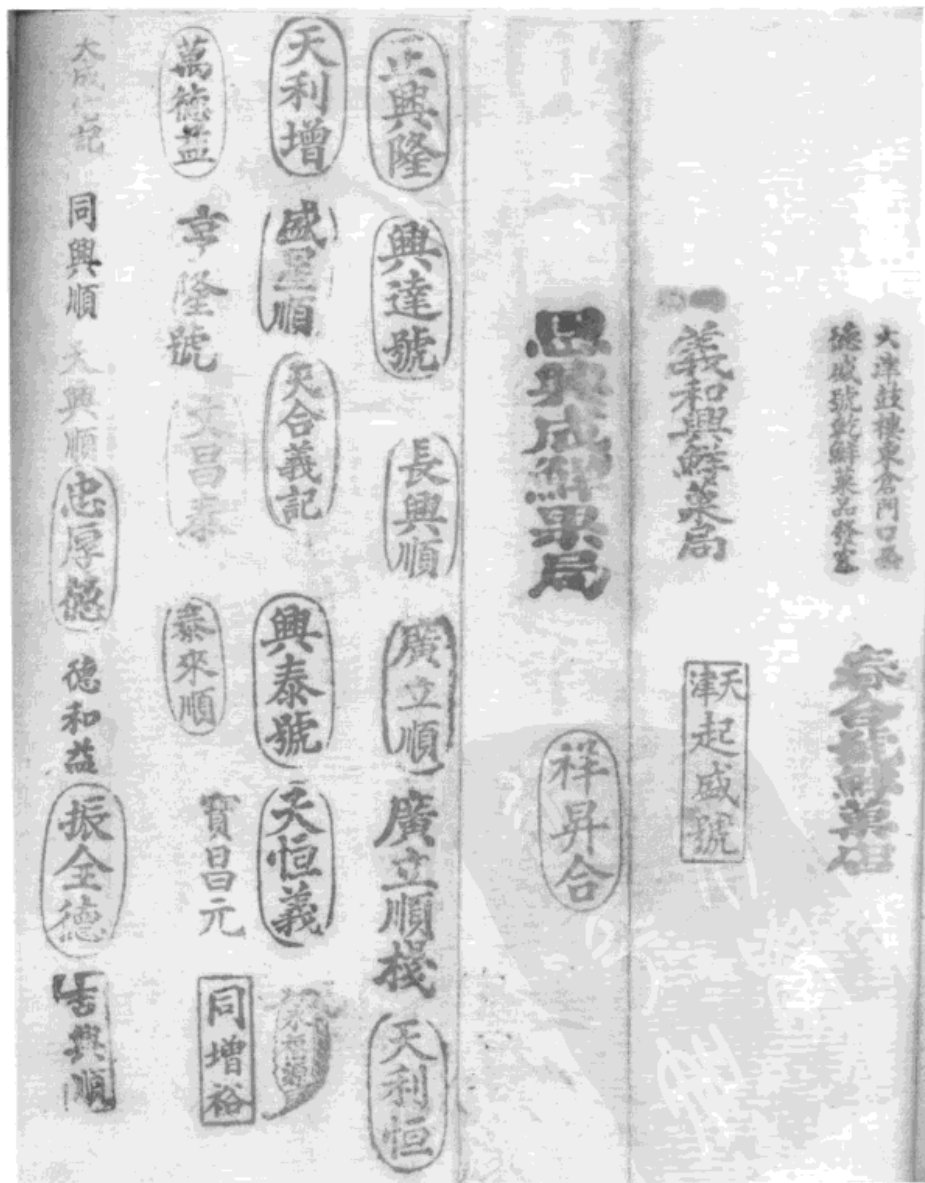 天津鼓樓東倉門口西
德盛號乾鮮菓品發客
春合號鮮菓店
義和興鮮菓局
天津
起盛號
思興成鮮果局
祥昇合
正興隆
興達號
長興順
廣立順
廣立順棧
天利恒
天利增
盛星順
天合義記
興泰號
天恒義
永恒源
萬德益
亨隆號
文昌泰
泰來順
寶昌元
同增裕
同興順
大興順
忠厚德
德和益
振全德
吉興順